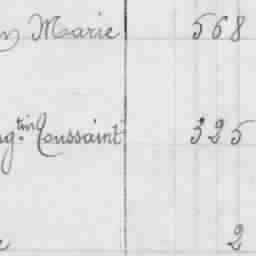 Marie 568
ug.tin Toussaint 325
2